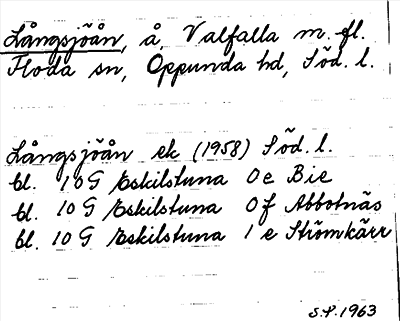 Långsjöån, å, Valfalla m. fl.
Floda sn, Oppunda hd, Söd. l.
Långsjöån ek (1958) Söd. l.
bl. 10 G Eskilstuna 0 e Bie
bl. 10 G Eskilstuna 0 f Abbotnäs
bl. 10 G Eskilstuna 1 e Strömkärr
S.P. 1963